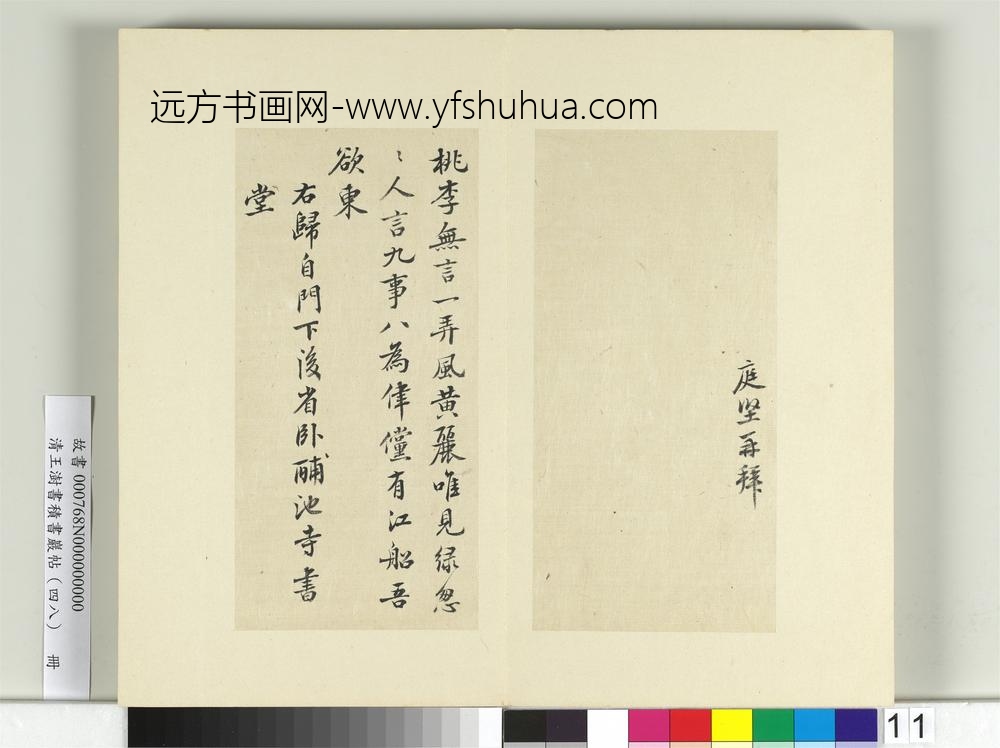 远方书画网-www.yfshuhua.com
庭坚再拜
桃李無言一弄風黄麗唯見緑怱
〻人言九事八為律儻有江船吾
欲東
右歸自門下後省卧酺池寺書
堂
故書 000768N000000000
清王澍書積書巖帖（四八） 冊
11